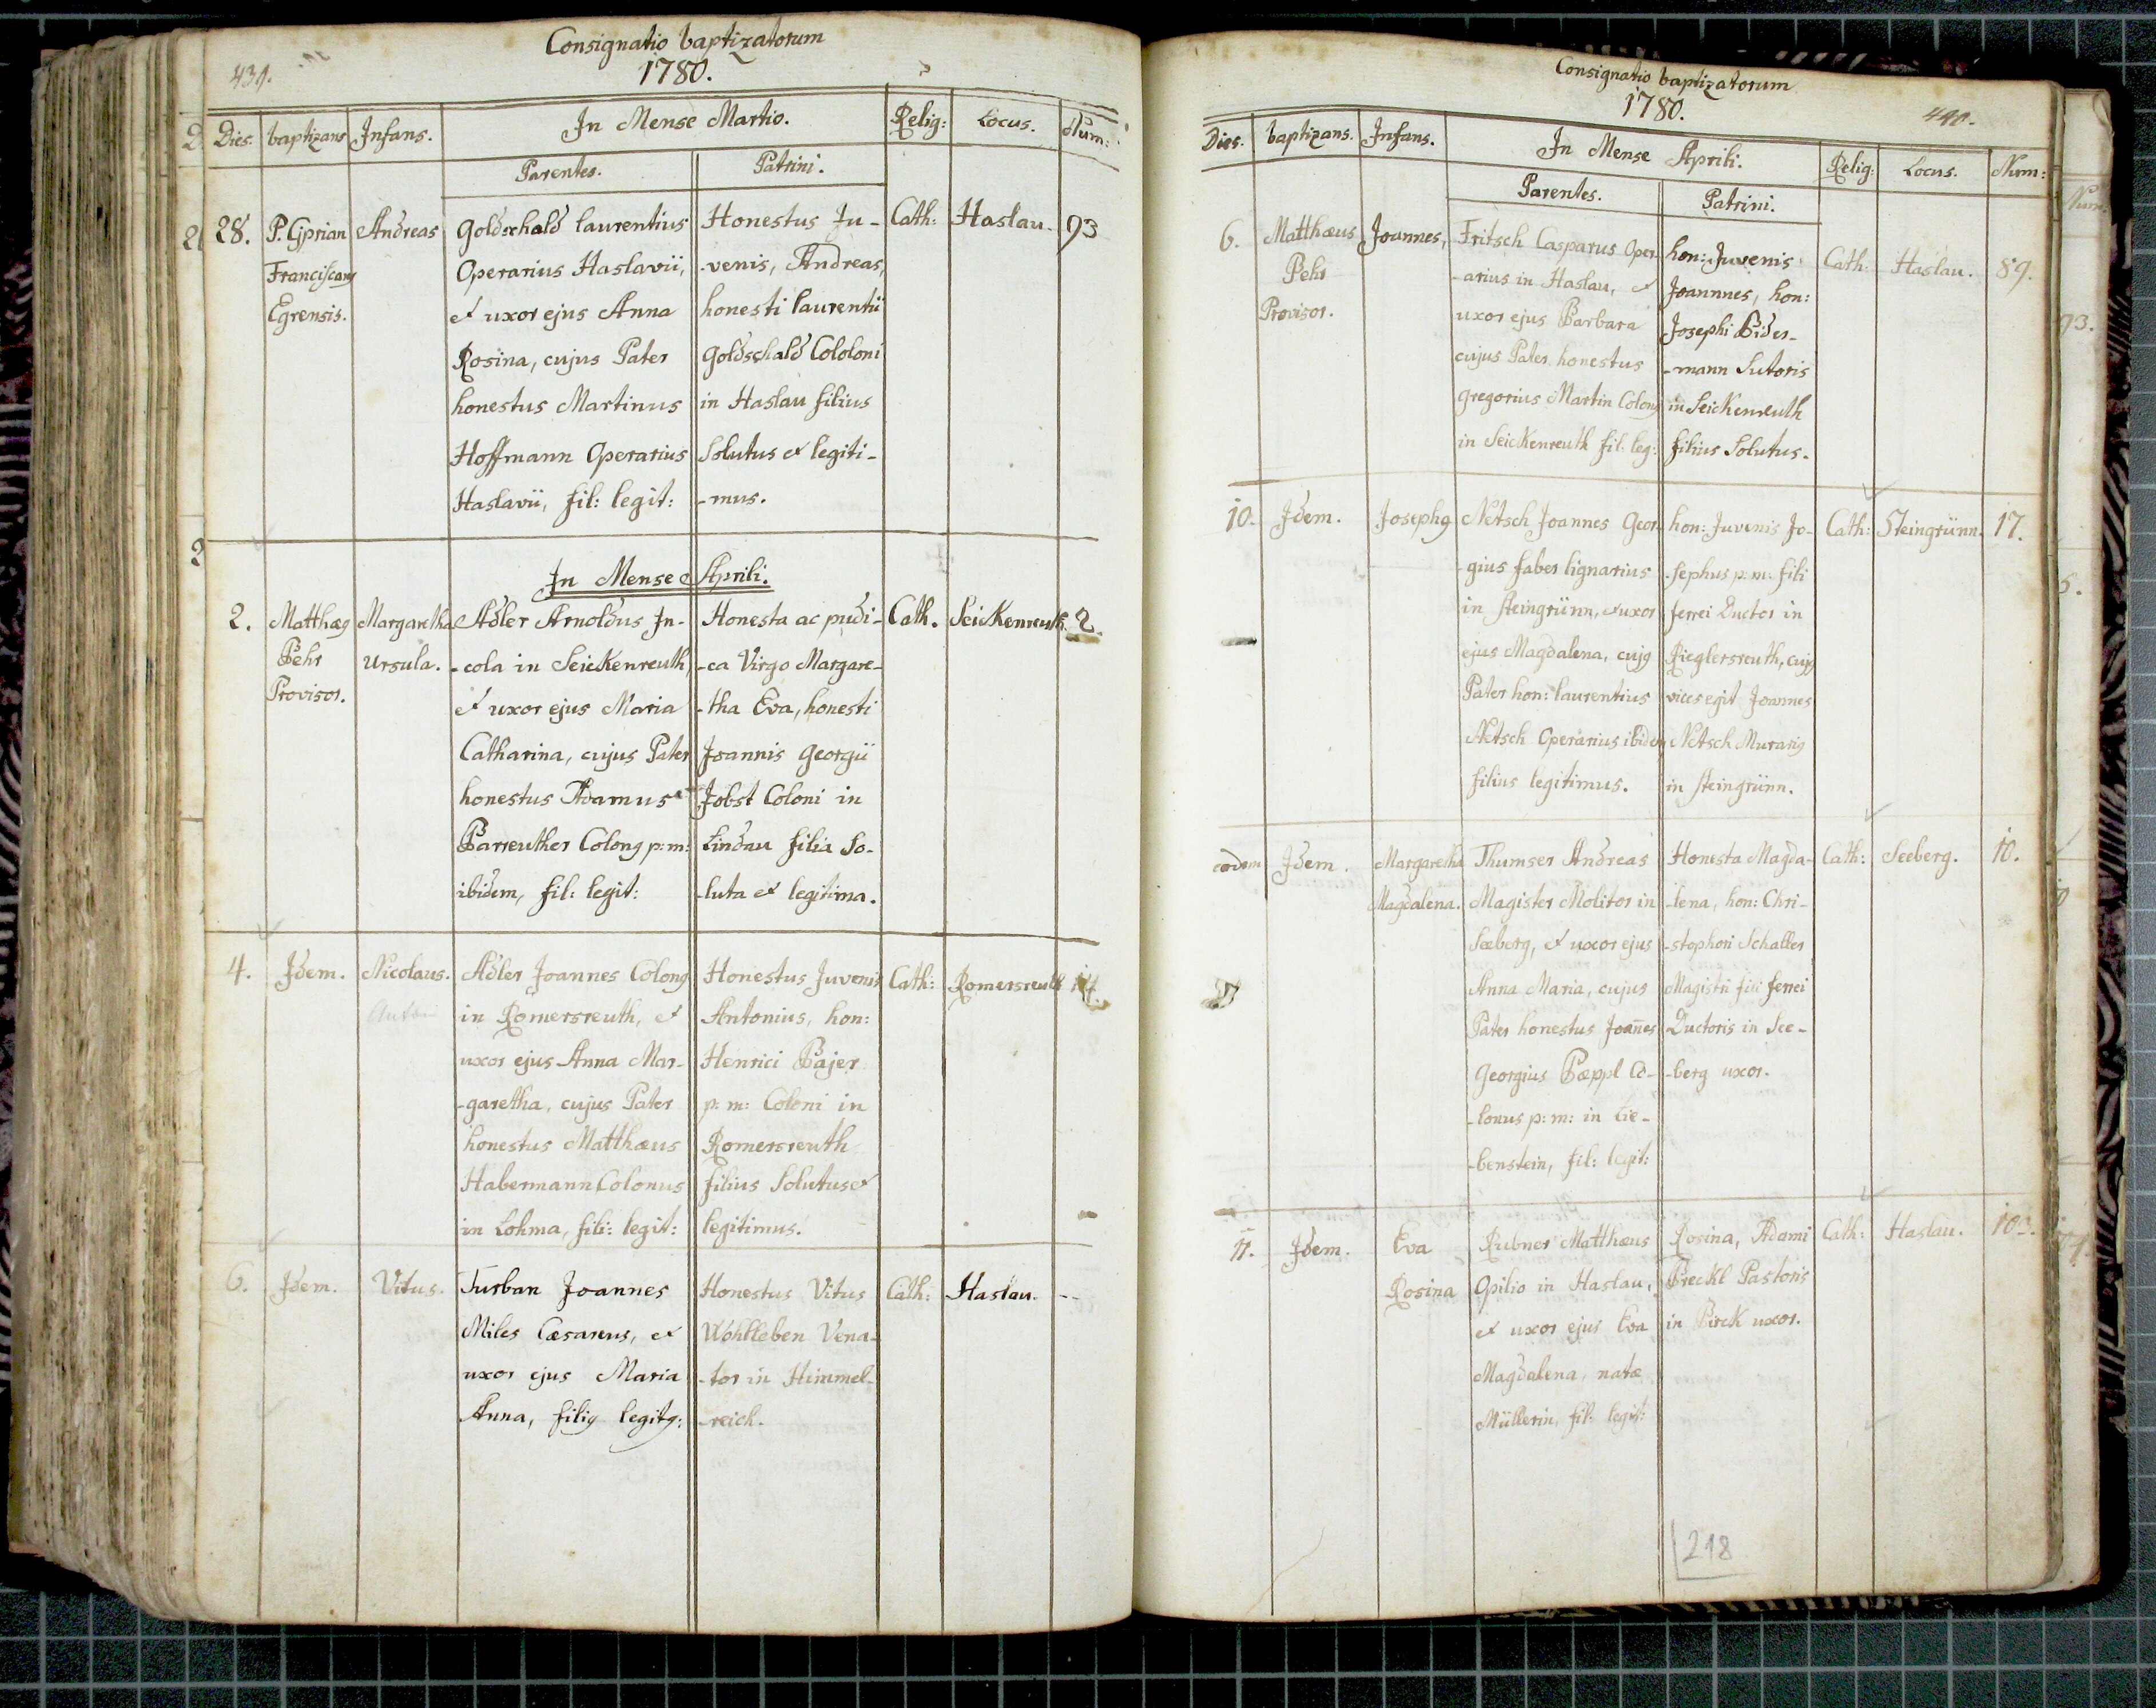 439.
Consignatio baptizatorum
1780.
Dies. baptizans Infans. In Mense Martio. Relig: Locus. Num:
Parentes. Patrini.
28. P. Cyprian Andreas Goldschald laurentius Honestus Ju- Cath: Haslau. 93
Franciscang Operarius Haslavii, -venis, Andreas,
Egrensis. et uxor ejus Anna honesti laurentii
Rosina, cujus Pater Goldschald Cololoni
honestus Martinus in Haslau filius
Hoffmann Operarius Solutus et legiti-
Haslavii, fil: legit: -mus.
In Mense Aprili.
2. Matthæg Margaretha Adler Arnoldus In- Honesta ac pudi- Cath. Seickenreuth. 2.
Pehr Ursula. -cola in Seickenreuth, -ca Virgo Margare-
Provisor. et uxor ejus Maria -tha Eva, honesti
Catharina, cujus Pater Joannis Georgii
honestus Adamus Jobst Coloni in
Parreuther Colong p: m: Lindau filia so-
ibidem, fil: legit: -luta et legitima.
4. Idem. Nicolaus. Adler Joannes Colong Honestus Juvenis Cath: Romersreuth 14.
in Romersreuth, et Antonius, hon:
uxor ejus Anna Mar- Henrici Bajer
-garetha, cujus Pater p: m: Coloni in
honestus Matthæus Romersreuth
Habermann Colonus filius Solutus et
in Lohma, fili: legit: legitimus.
6. Idem. Vitus. Turban Joannes Honestus Vitus Cath: Haslau. --
Miles Cæsareus, et Wohlleben Vena-
uxor ejus Maria -tor in Himmel-
Anna, filig legitg: -reich.
Consignatio baptizatorum
1780.
440.
Dies. baptizans. Infans. In Mense Aprili. Relig: Locus. Num:
Parentes. Patrini.
6. Matthæus Joannes, Fritsch Casparus Oper- hon: Juvenis Cath: Haslau. 89.
Pehr -arius in Haslau, et Joannnes, hon:
Provisor. uxor ejus Barbara Josephi Bider-
cujus Pater honestus -mann Sutoris
Gregorius Martin Colong in Seickenreuth
in Seickenreuth fil: leg: filius Solutus.
10. Idem. Josephg Netsch Joannes Geor- hon: Juvenis Jo- Cath: Steingrünn. 17.
-gius faber lignarius -sephus p: m: fili
in steingrünn, et uxor ferrei Ductor in
ejus Magdalena, cujg Rieglersreuth, cujg
Pater hon: laurentius vices egit Joannes
Netsch Operarius ibidem Netsch Murarig
filius legitimus. in steingrünn.
eodem Idem. Margaretha Thumser Andreas Honesta Magda- Cath: Seeberg. 10.
Magdalena. Magister Molitor in -lena, hon: Chri-
Seeberg, et uxor ejus -stophori Schaller
Anna Maria, cujus Magistri fili ferrei
Pater honestus Joañes Ductoris in See-
Georgius Pæppl Co- -berg uxor.
-lonus p: m: in Lie-
-benstein, fil: legit:
11. Idem. Eva Rubner Matthæus Rosina, Adami Cath: Haslau. 103.
Rosina Opilio in Haslau, Preckl Pastoris
et uxor ejus Eva in Pirck uxor.
Magdalena, natæ
Müllerin, fil: legit:
218